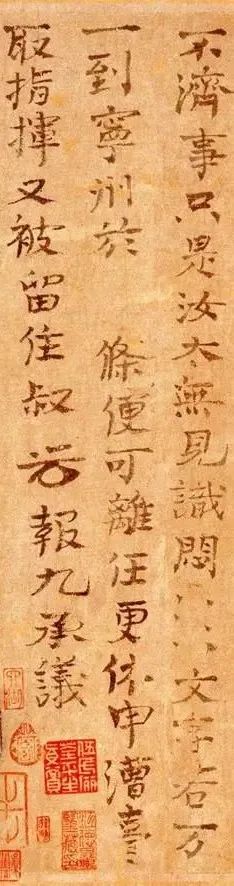 不濟事只是汝太無見識悶〻文字若万
一到寧州於 條便可離任更休申漕臺
取指揮又被留住叔報九承議